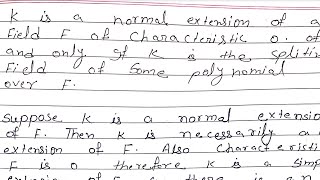 K is a normal extension of a
field F of Characteristic 0. of
and only If K is the spliting
Field of Some polynomial
over F.
Suppose K is a normal extension
of F. Then K is necessarily a
extension of F. Also Characteristic
F is 0 therefore K is a Simp